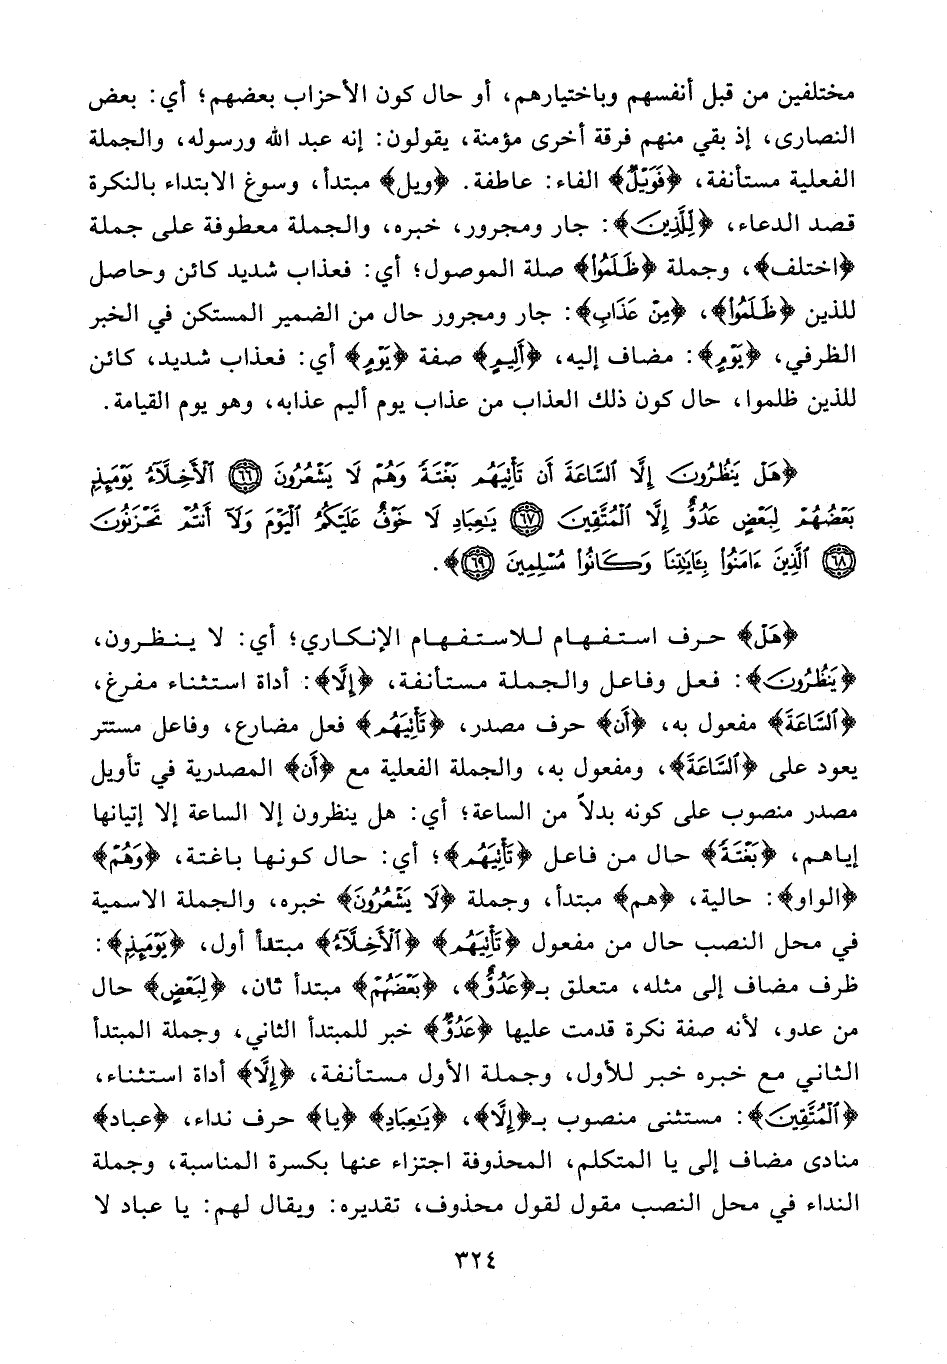 مختلفين من قبل أنفسهم وباختيارهم، أو حال كون الأحزاب بعضهم؛ أي: بعض
النصارى، إذ بقي منهم فرقة أخرى مؤمنة، يقولون: إنه عبد الله ورسوله، والجملة
الفعلية مستأنفة، ﴿فَوَيْلٌ﴾ الفاء: عاطفة. ﴿ويل﴾ مبتدأ، وسوغ الابتداء بالنكرة
قصد الدعاء، ﴿لِّلَّذِينَ﴾: جار ومجرور، خبره، والجملة معطوفة على جملة
﴿اختلف﴾، وجملة ﴿ظَلَمُوا۟﴾ صلة الموصول؛ أي: فعذاب شديد كائن وحاصل
للذين ﴿ظَلَمُوا۟﴾، ﴿مِنْ عَذَابِ﴾: جار ومجرور حال من الضمير المستكن في الخبر
الظرفي، ﴿يَوْمٍ﴾: مضاف إليه، ﴿أَلِيمٍ﴾ صفة ﴿يَوْمٍ﴾ أي: فعذاب شديد، كائن
للذين ظلموا، حال كون ذلك العذاب من عذاب يوم أليم عذابه، وهو يوم القيامة.
﴿هَلْ يَنظُرُونَ إِلَّا ٱلسَّاعَةَ أَن تَأْتِيَهُم بَغْتَةً وَهُمْ لَا يَشْعُرُونَ ٦٦ ٱلْأَخِلَّآءُ يَوْمَئِذٍۭ
بَعْضُهُمْ لِبَعْضٍ عَدُوٌّ إِلَّا ٱلْمُتَّقِينَ ٦٧ يَٰعِبَادِ لَا خَوْفٌ عَلَيْكُمُ ٱلْيَوْمَ وَلَآ أَنتُمْ تَحْزَنُونَ
٦٨ ٱلَّذِينَ ءَامَنُوا۟ بِـَٔايَٰتِنَا وَكَانُوا۟ مُسْلِمِينَ ٦٩﴾.
﴿هَلْ﴾ حرف استفهام للاستفهام الإنكاري؛ أي: لا ينظرون،
﴿يَنظُرُونَ﴾: فعل وفاعل والجملة مستأنفة، ﴿إِلَّا﴾: أداة استثناء مفرغ،
﴿ٱلسَّاعَةَ﴾ مفعول به، ﴿أَن﴾ حرف مصدر، ﴿تَأْتِيَهُم﴾ فعل مضارع، وفاعل مستتر
يعود على ﴿ٱلسَّاعَةَ﴾، ومفعول به، والجملة الفعلية مع ﴿أَن﴾ المصدرية في تأويل
مصدر منصوب على كونه بدلاً من الساعة؛ أي: هل ينظرون إلا الساعة إلا إتيانها
إياهم، ﴿بَغْتَةً﴾ حال من فاعل ﴿تَأْتِيَهُم﴾؛ أي: حال كونها باغتة، ﴿وَهُمْ﴾
﴿الواو﴾: حالية، ﴿هم﴾ مبتدأ، وجملة ﴿لَا يَشْعُرُونَ﴾ خبره، والجملة الاسمية
في محل النصب حال من مفعول ﴿تَأْتِيَهُم﴾ ﴿ٱلْأَخِلَّآءُ﴾ مبتدأ أول، ﴿يَوْمَئِذٍۭ﴾:
ظرف مضاف إلى مثله، متعلق بـ﴿عَدُوٌّ﴾، ﴿بَعْضُهُمْ﴾ مبتدأ ثان، ﴿لِبَعْضٍ﴾ حال
من عدو، لأنه صفة نكرة قدمت عليها ﴿عَدُوٌّ﴾ خبر للمبتدأ الثاني، وجملة المبتدأ
الثاني مع خبره خبر للأول، وجملة الأول مستأنفة، ﴿إِلَّا﴾ أداة استثناء،
﴿ٱلْمُتَّقِينَ﴾: مستثنى منصوب بـ﴿إِلَّا﴾، ﴿يَٰعِبَادِ﴾ ﴿يا﴾ حرف نداء، ﴿عباد﴾
منادى مضاف إلى يا المتكلم، المحذوفة اجتزاء عنها بكسرة المناسبة، وجملة
النداء في محل النصب مقول لقول محذوف، تقديره: ويقال لهم: يا عباد لا
٣٢٤